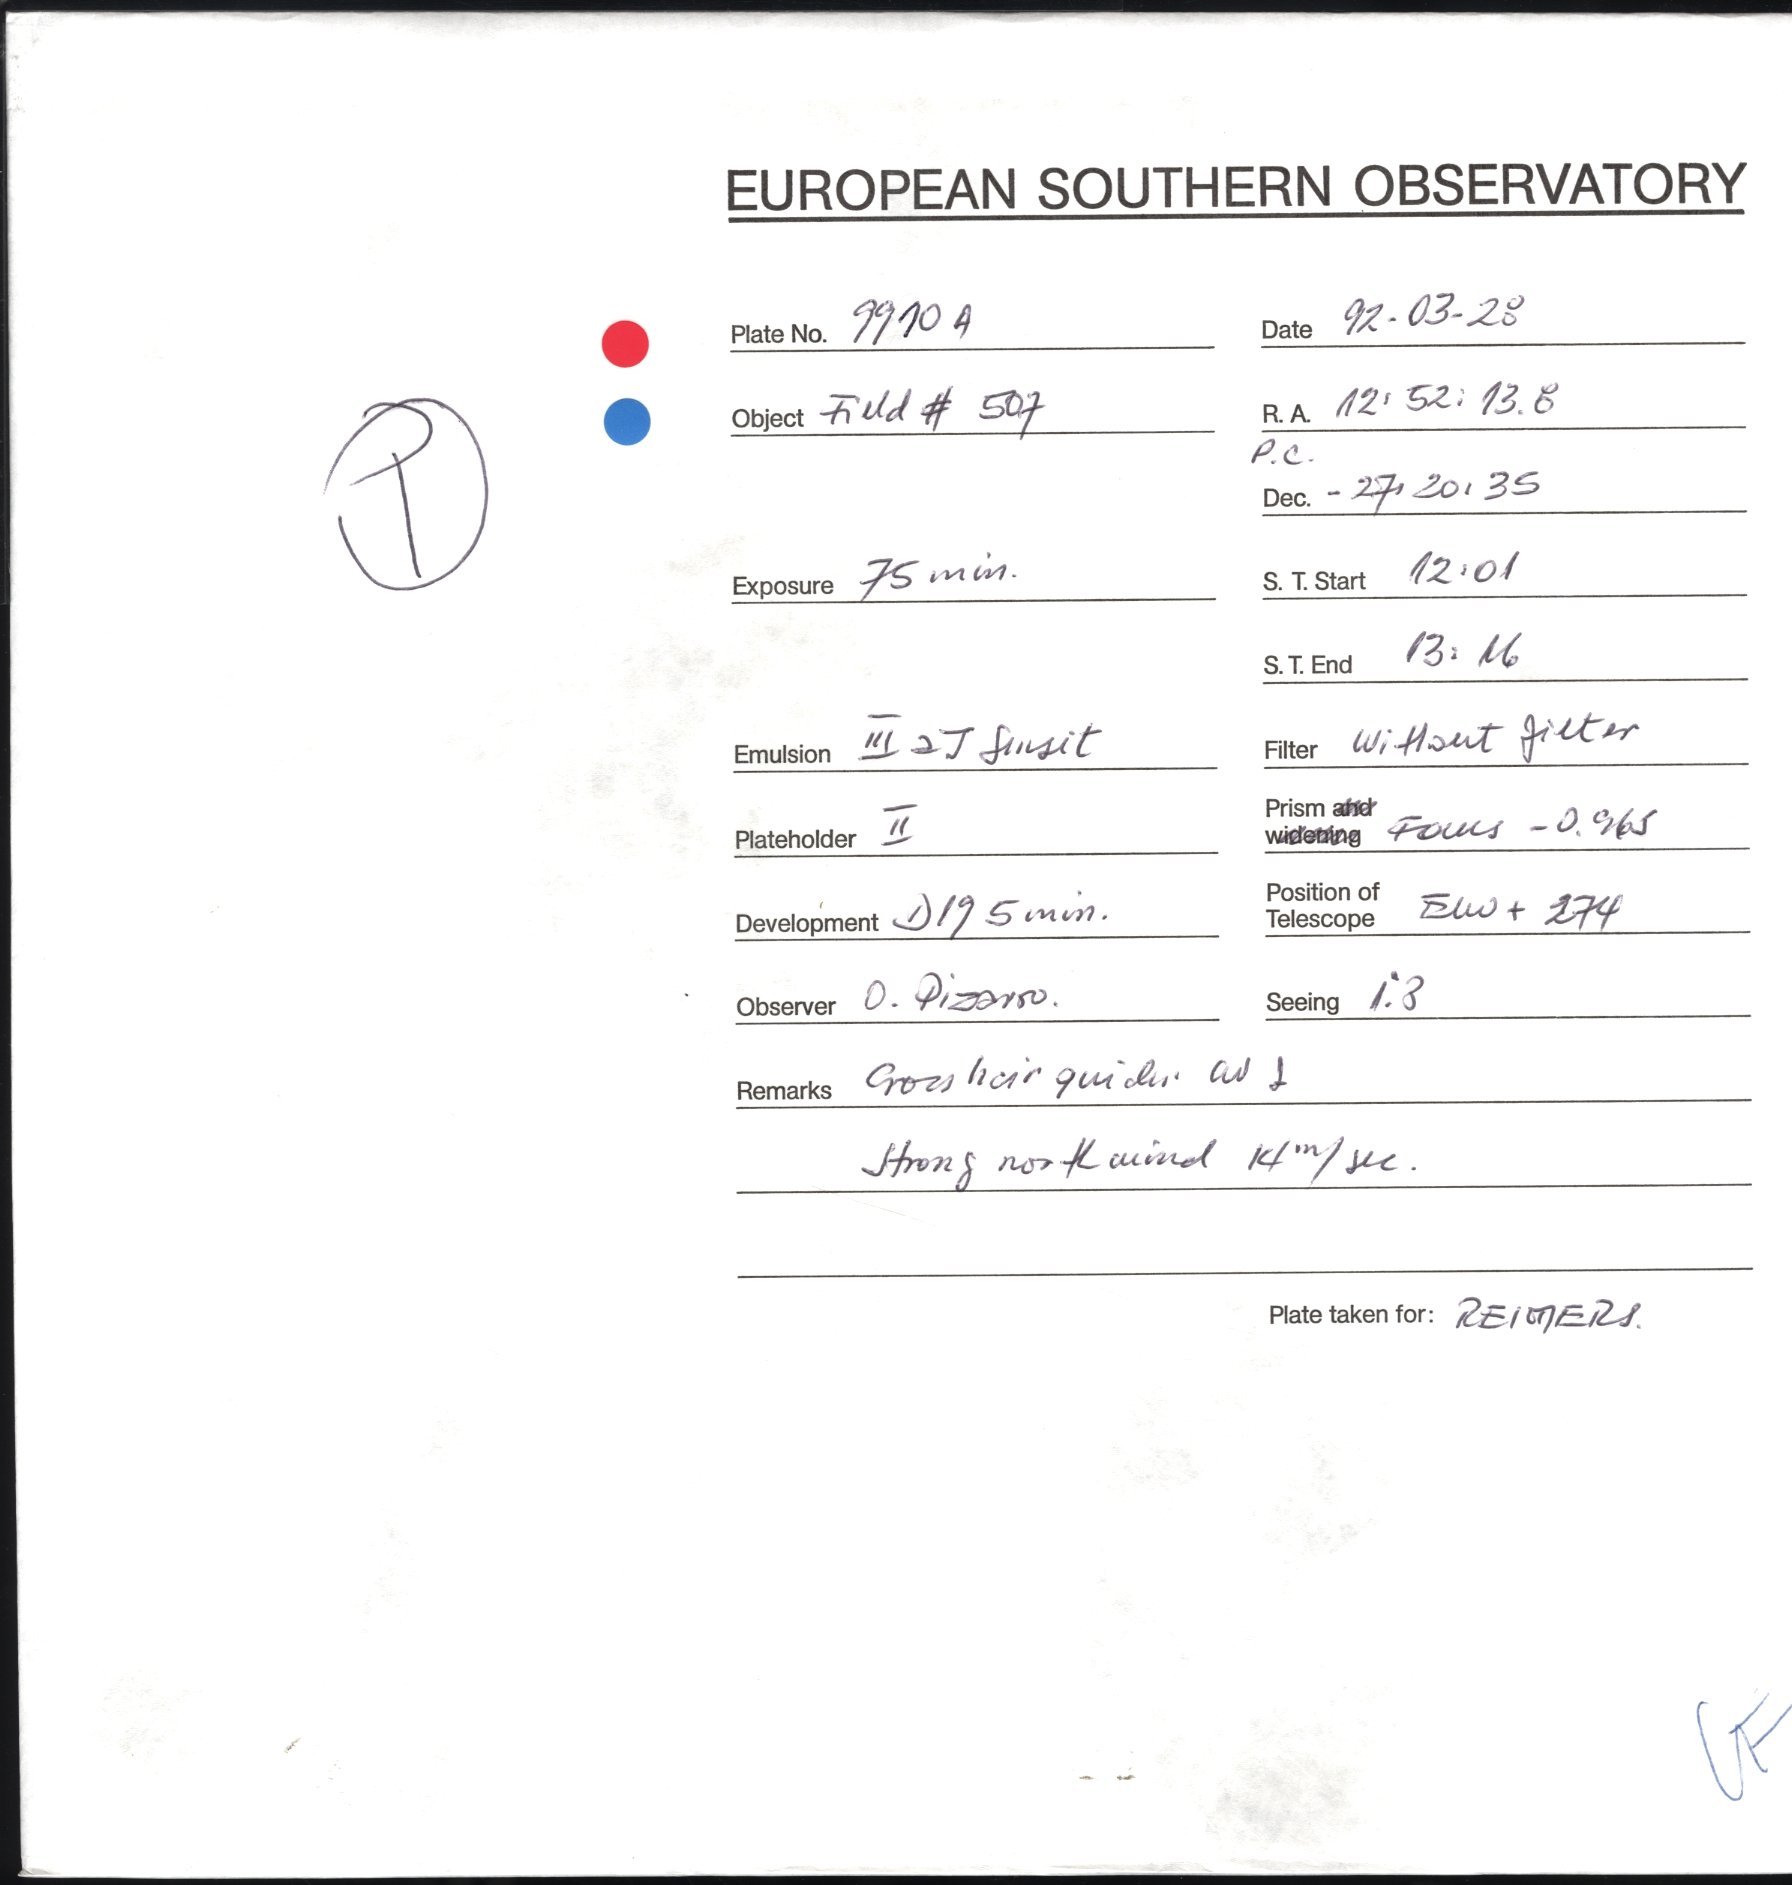 EUROPEAN SOUTHERN OBSERVATORY
Plate No. 9910 A Date 92-03-28
Object Field # 507 R. A. 12: 52: 13.8
P.C.
Dec. - 27: 20: 35
P
Exposure 75 min. S. T. Start 12:01
S. T. End 13:16
Emulsion III aJ sensit Filter Without filter
Plateholder II Prism and widening Focus - 0.965
Development D19 5 min. Position of Telescope E + 274
Observer O. Pizarro. Seeing 1.8
Remarks Cross hair
Strong north wind 14 m/sec.
Plate taken for: REIMERS.